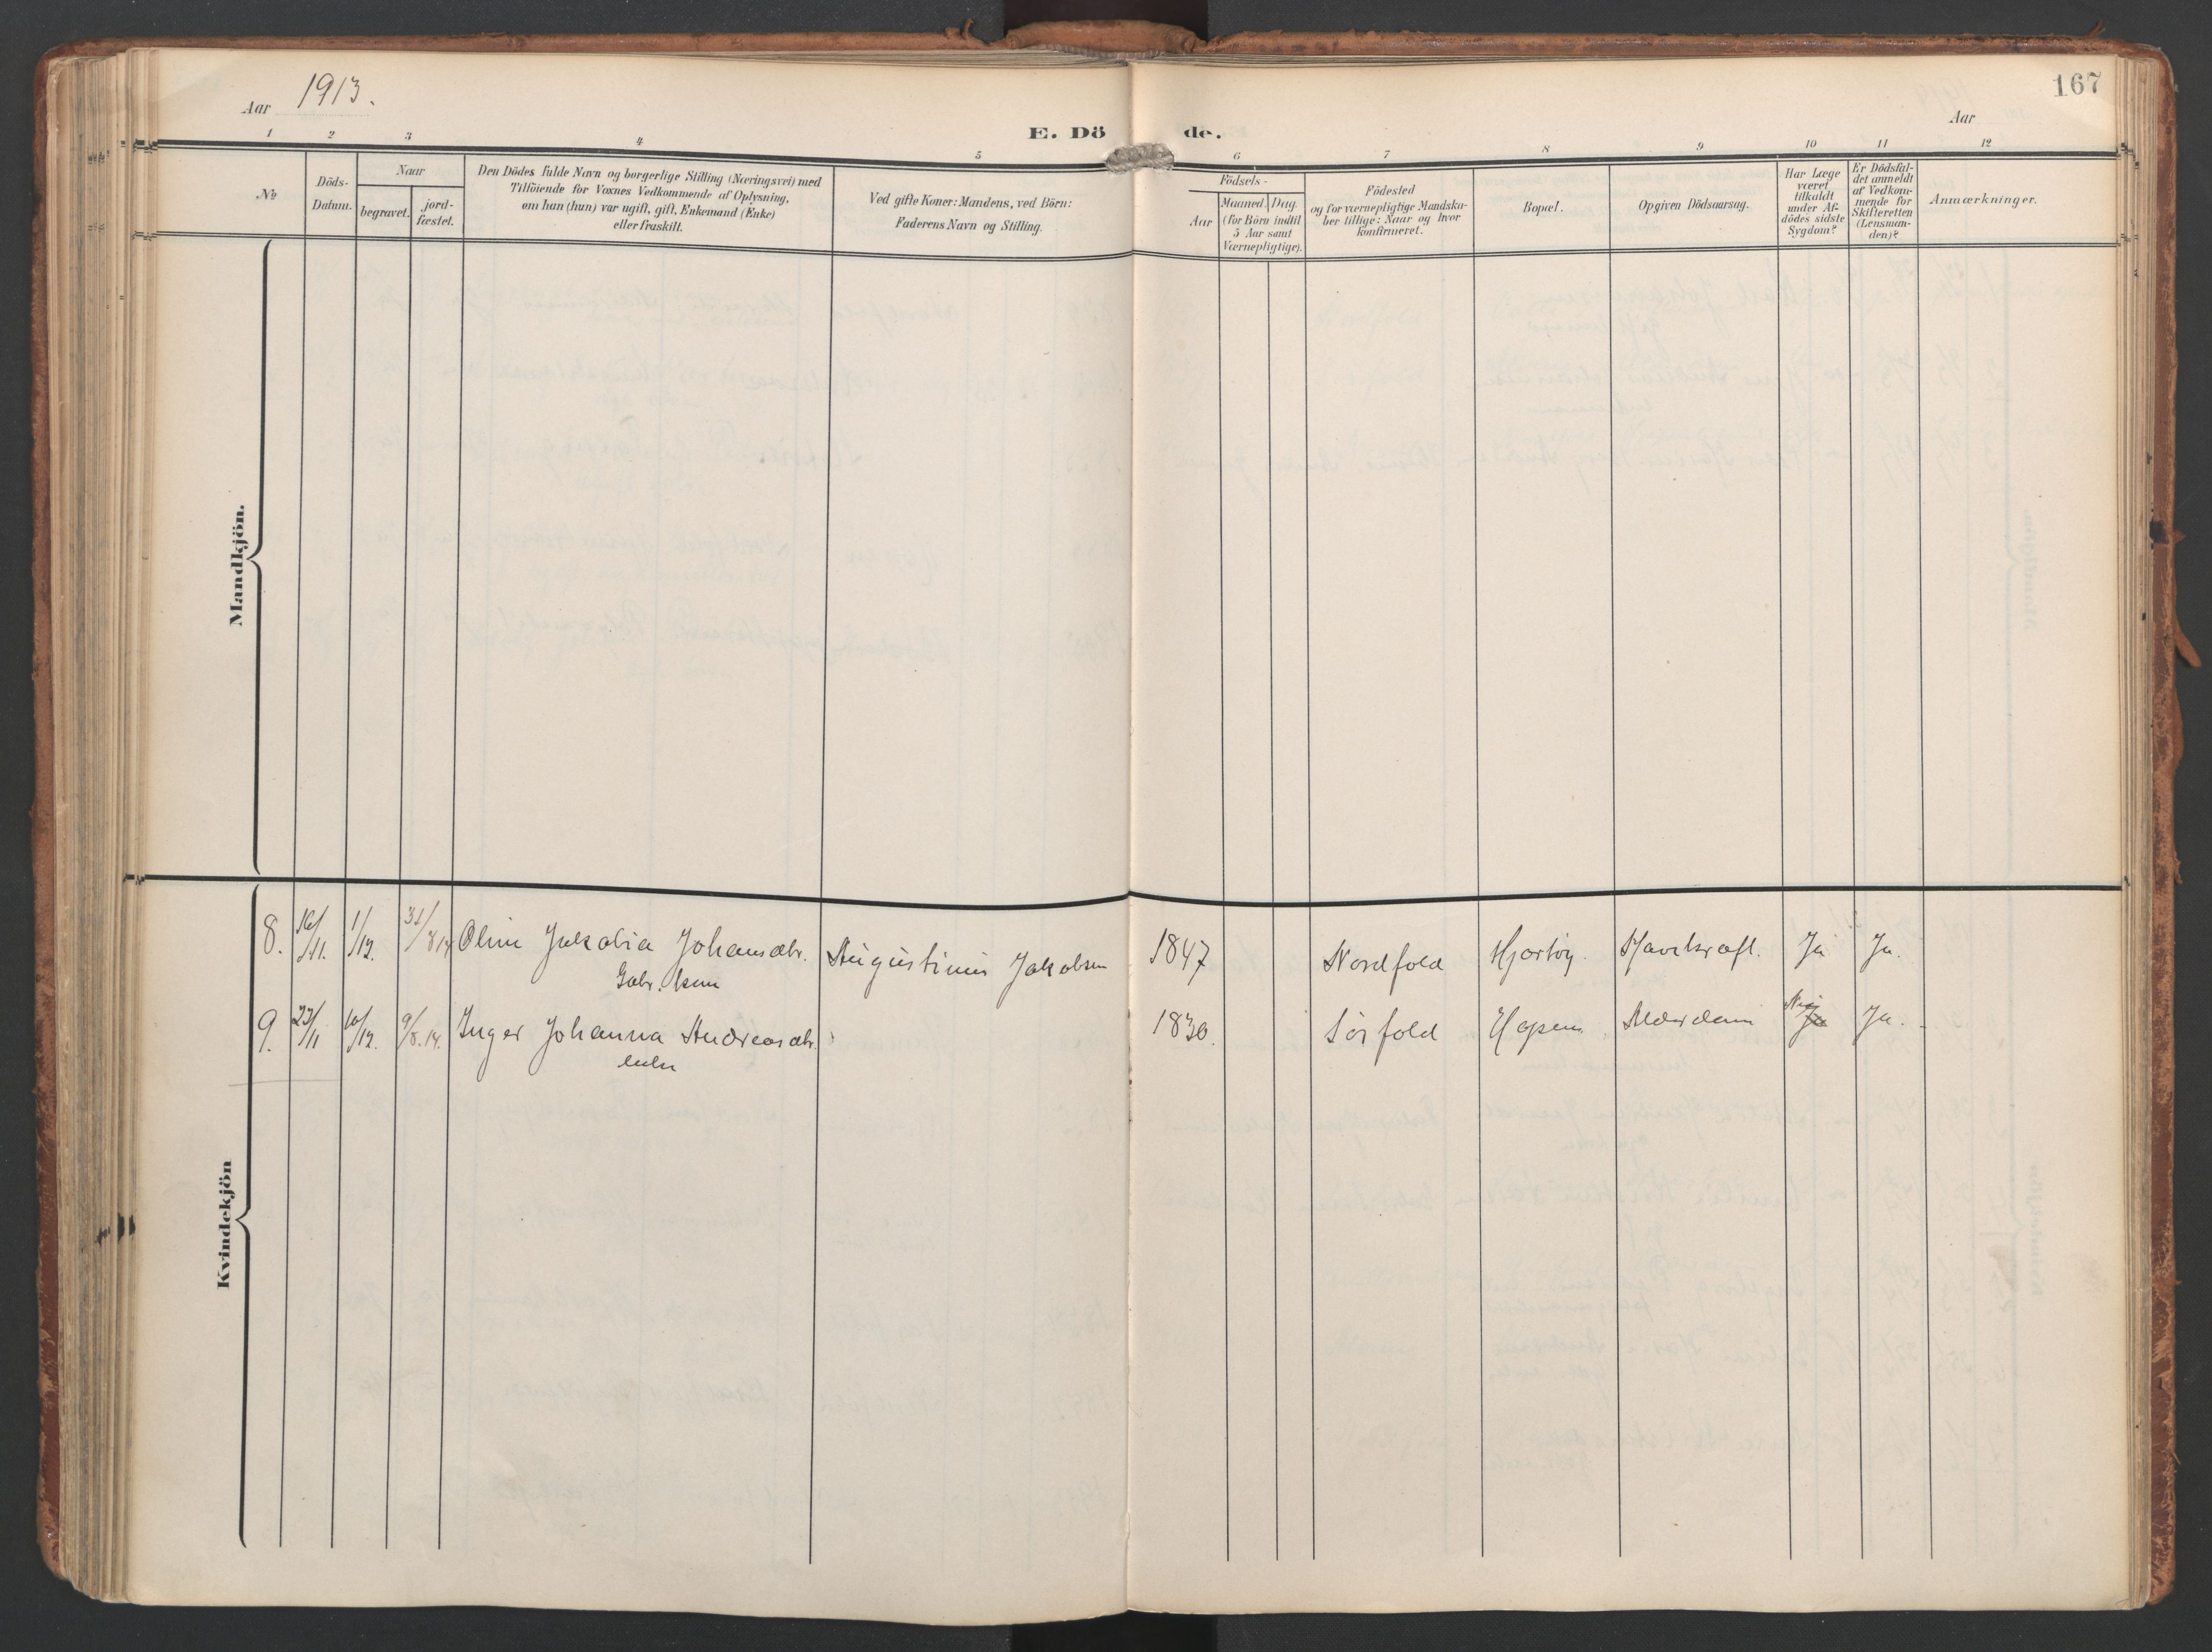 167
Aar 1913.
Aar
E. Dö de.
1 2 3 4 5 6 7 8 9 10 11 12
No
Döds-
Datum.
Naar
begravet.
jord-
fæstet.
Den Dödes fulde Navn og borgerlige Stilling (Næringsvei) med
Tilföiende for Voxnes Vedkommende af Oplysning,
om han (hun) var ugift, gift, Enkemand (Enke)
eller fraskilt.
Ved gifte Koner: Mandens, ved Börn:
Faderens Navn og Stilling.
Födsels-
Aar
Maaned. Dag.
(for Börn indtil
5 Aar samt
Værnepligtige).
Födested
og for værnepligtige Mandska-
ber tillige: Naar og hvor
konfirmeret.
Bopæl.
Opgiven Dödsaarsag.
Har Læge
været
tilkaldt
under Af-
dödes sidste
Sygdom?
Er Dödsfal-
det anmeldt
af Vedkom-
mende for
Skifteretten
(Lensman-
den)?
Anmærkninger.
Mandkjön.
Kvindekjön
8. 16/11. 1/12. 31/8 14 Oline Jakobia Johansdtr. Augustinus Jakobsen 1847 Nordfold Hjartøy. Mavekræft. Ja Ja.
Gbr. kone
9. 23/11 10/12. 9/8.14. Inger Johanna Andreasdtr. 1830. Sørfold Hopen Alderdom Nej Ja.
enke